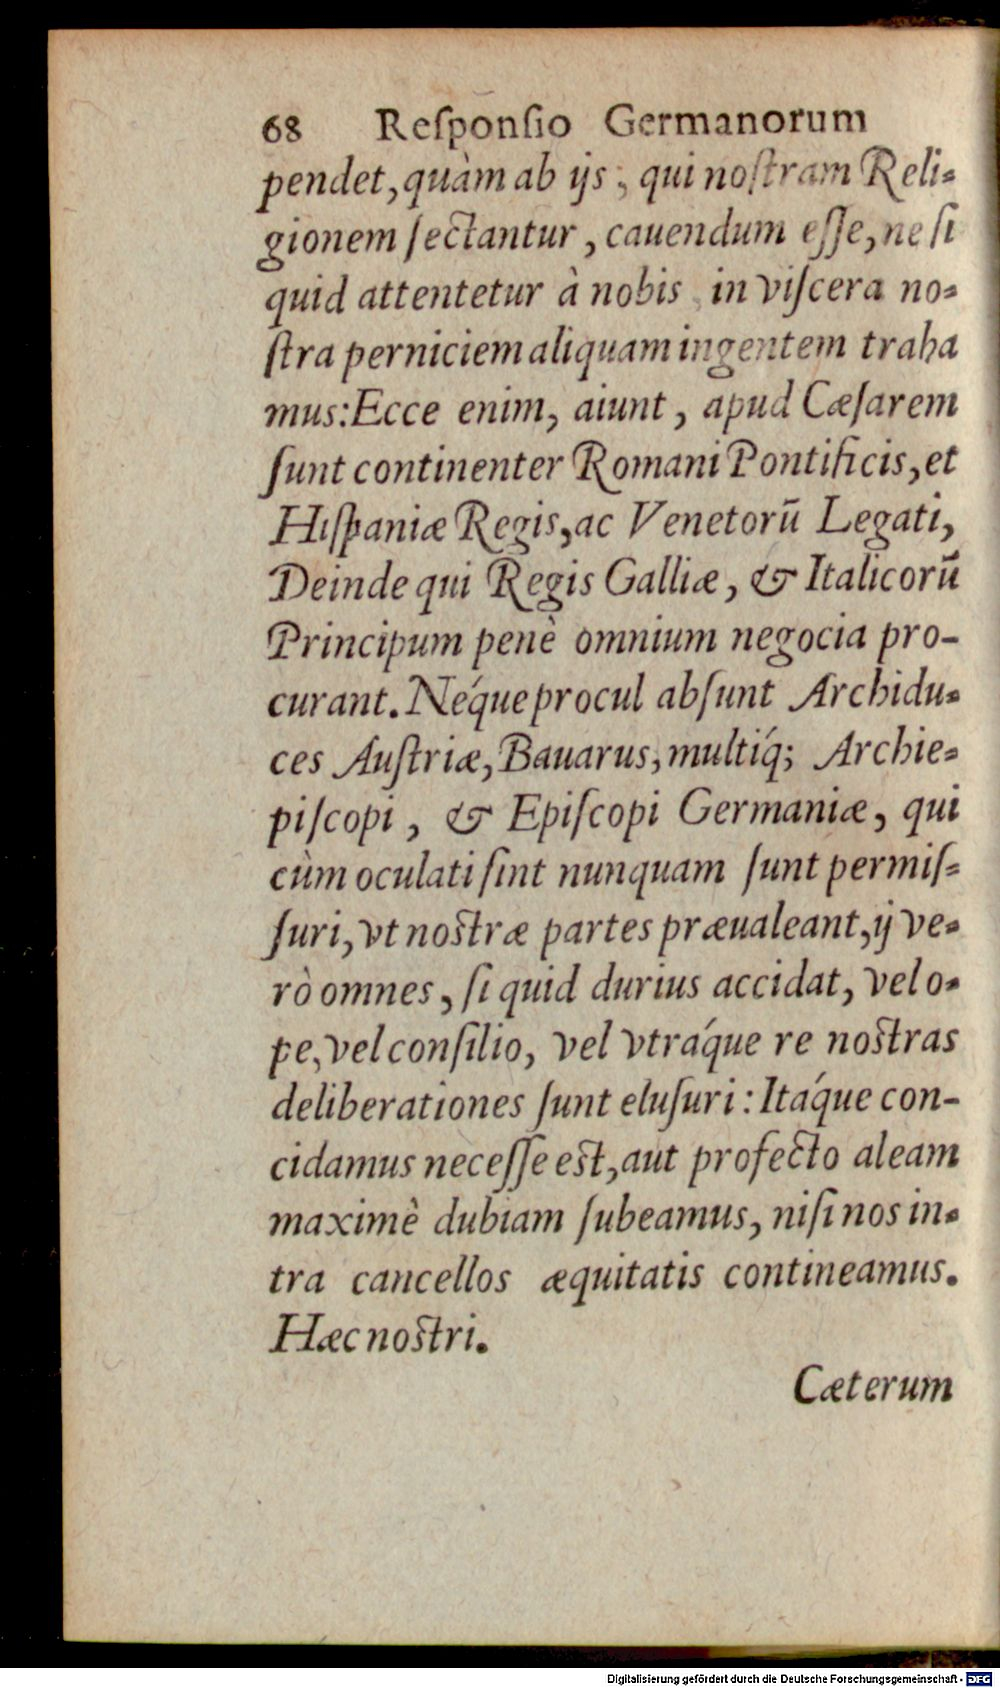 68 Reſponſio Germanorum
pendet, quàm ab ijs, qui noſtram Reli-
gionem ſectantur, cauendum eſſe, ne ſi
quid attentetur à nobis in viſcera no-
ſtra perniciem aliquam ingentem traha
mus: Ecce enim, aiunt, apud Cæſarem
ſunt continenter Romani Pontificis, et
Hiſpaniæ Regis, ac Venetorū Legati,
Deinde qui Regis Galliæ, & Italicorū
Principum penè omnium negocia pro-
curant. Neq́ue procul abſunt Archidu-
ces Auſtriæ, Bauarus, multiq́; Archie-
piſcopi, & Epiſcopi Germaniæ, qui
cùm oculati ſint nunquam ſunt permiſ-
ſuri, vt noſtræ partes præualeant, ij ve-
rò omnes, ſi quid durius accidat, vel o-
pe, vel conſilio, vel vtráque re noſtras
deliberationes ſunt eluſuri: Itáque con-
cidamus neceſſe eſt, aut profecto aleam
maximè dubiam ſubeamus, niſi nos in-
tra cancellos æquitatis contineamus.
Hæc noſtri.
Cæterum
Digitalisierung gefördert durch die Deutsche Forschungsgemeinschaft - DFG